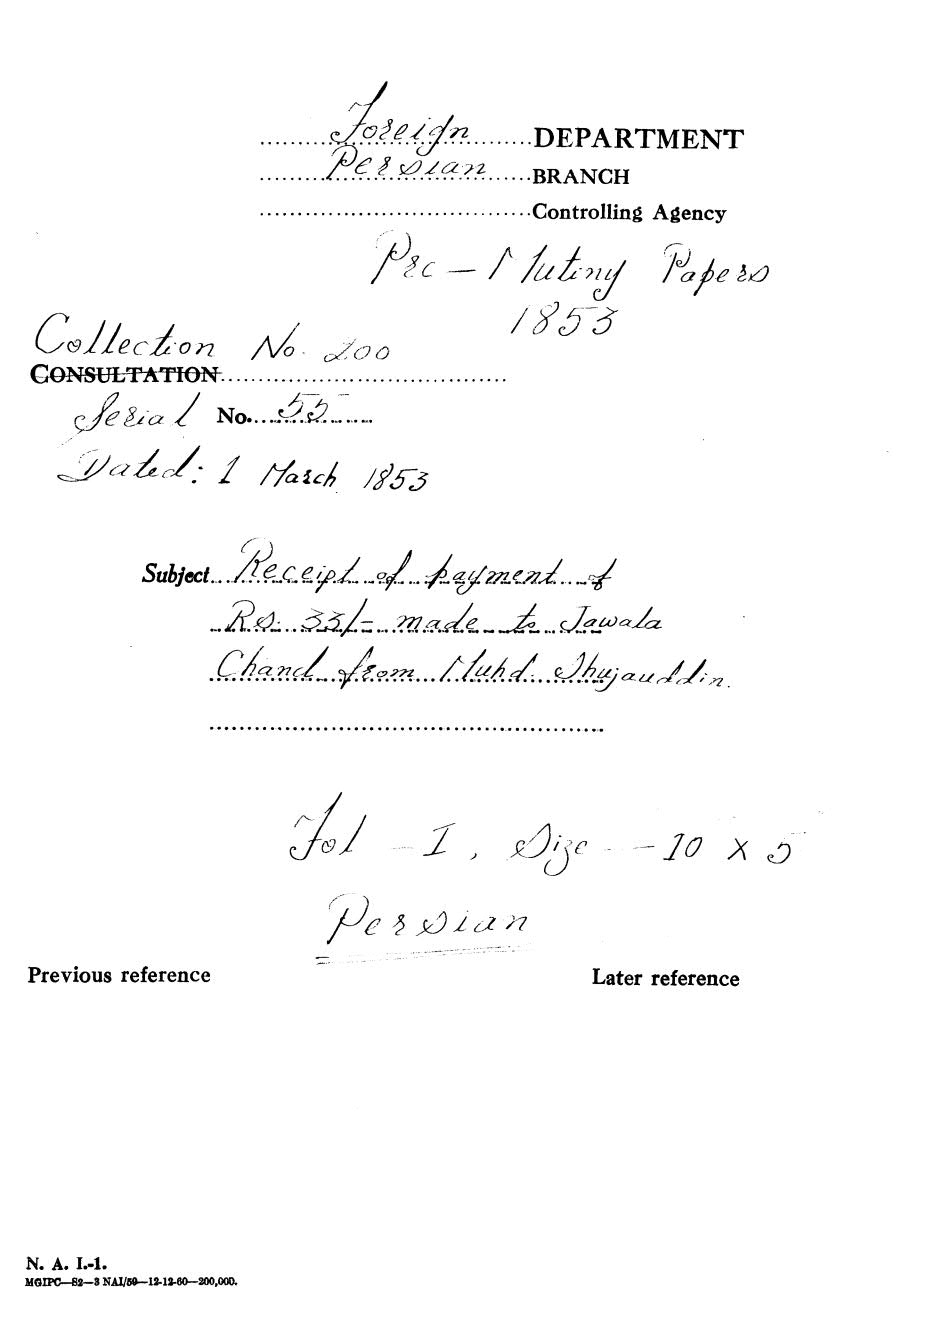 Foreign DEPARTMENT
Persian BRANCH
Controlling Agency
Pre-Mutiny Papers
1853
Collection No. 200
CONSULTATION
Serial No. 55
Dated: 1 March 1853
Subject Receipt of payment of
Rs. 33/- made to Jawala
Chand from Muhd. Shujauddin.
Fol - 1, Size - 10 x 5
Persian
Previous reference
Later reference
N. A. I.-1.
MGIPC—S2—3 NAI/59—12-12-60—200,000.